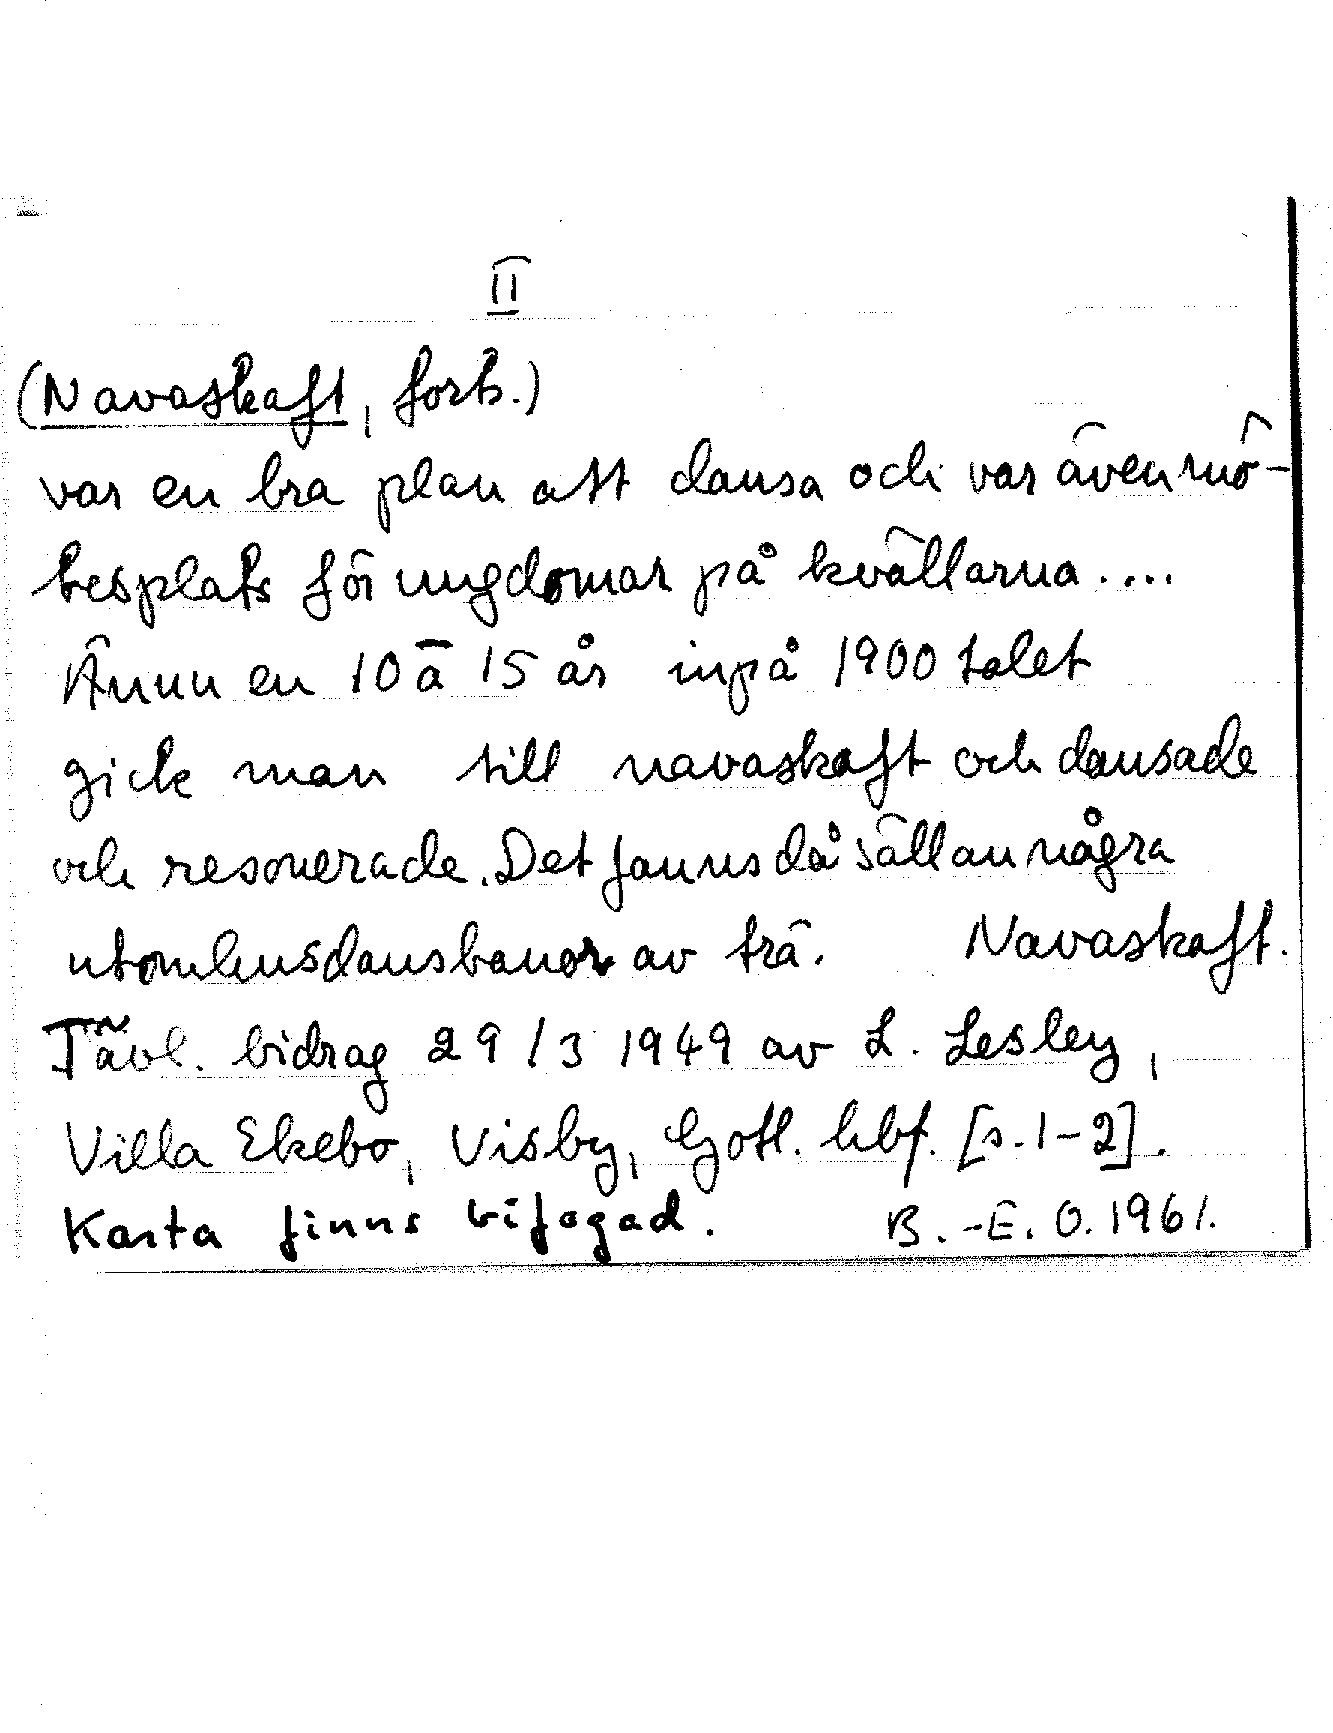 II
(Navaskaft, forts.)
var en bra plan att dansa och var även mö-
tesplats för ungdomar på kvällarna....
Ännu en 10 ā 15 år inpå 1900 talet
gick man till navaskaft och dansade
och resonerade. Det fanns då sällan några
utomhusdansbanor av trä. Navaskaft.
Tävl. bidrag 29/3 1949 av L. Lesley,
Villa Ekebo, Visby, Gotl. hbf. [s. 1-2].
Karta finns bifogad. B.-E. O. 1961.